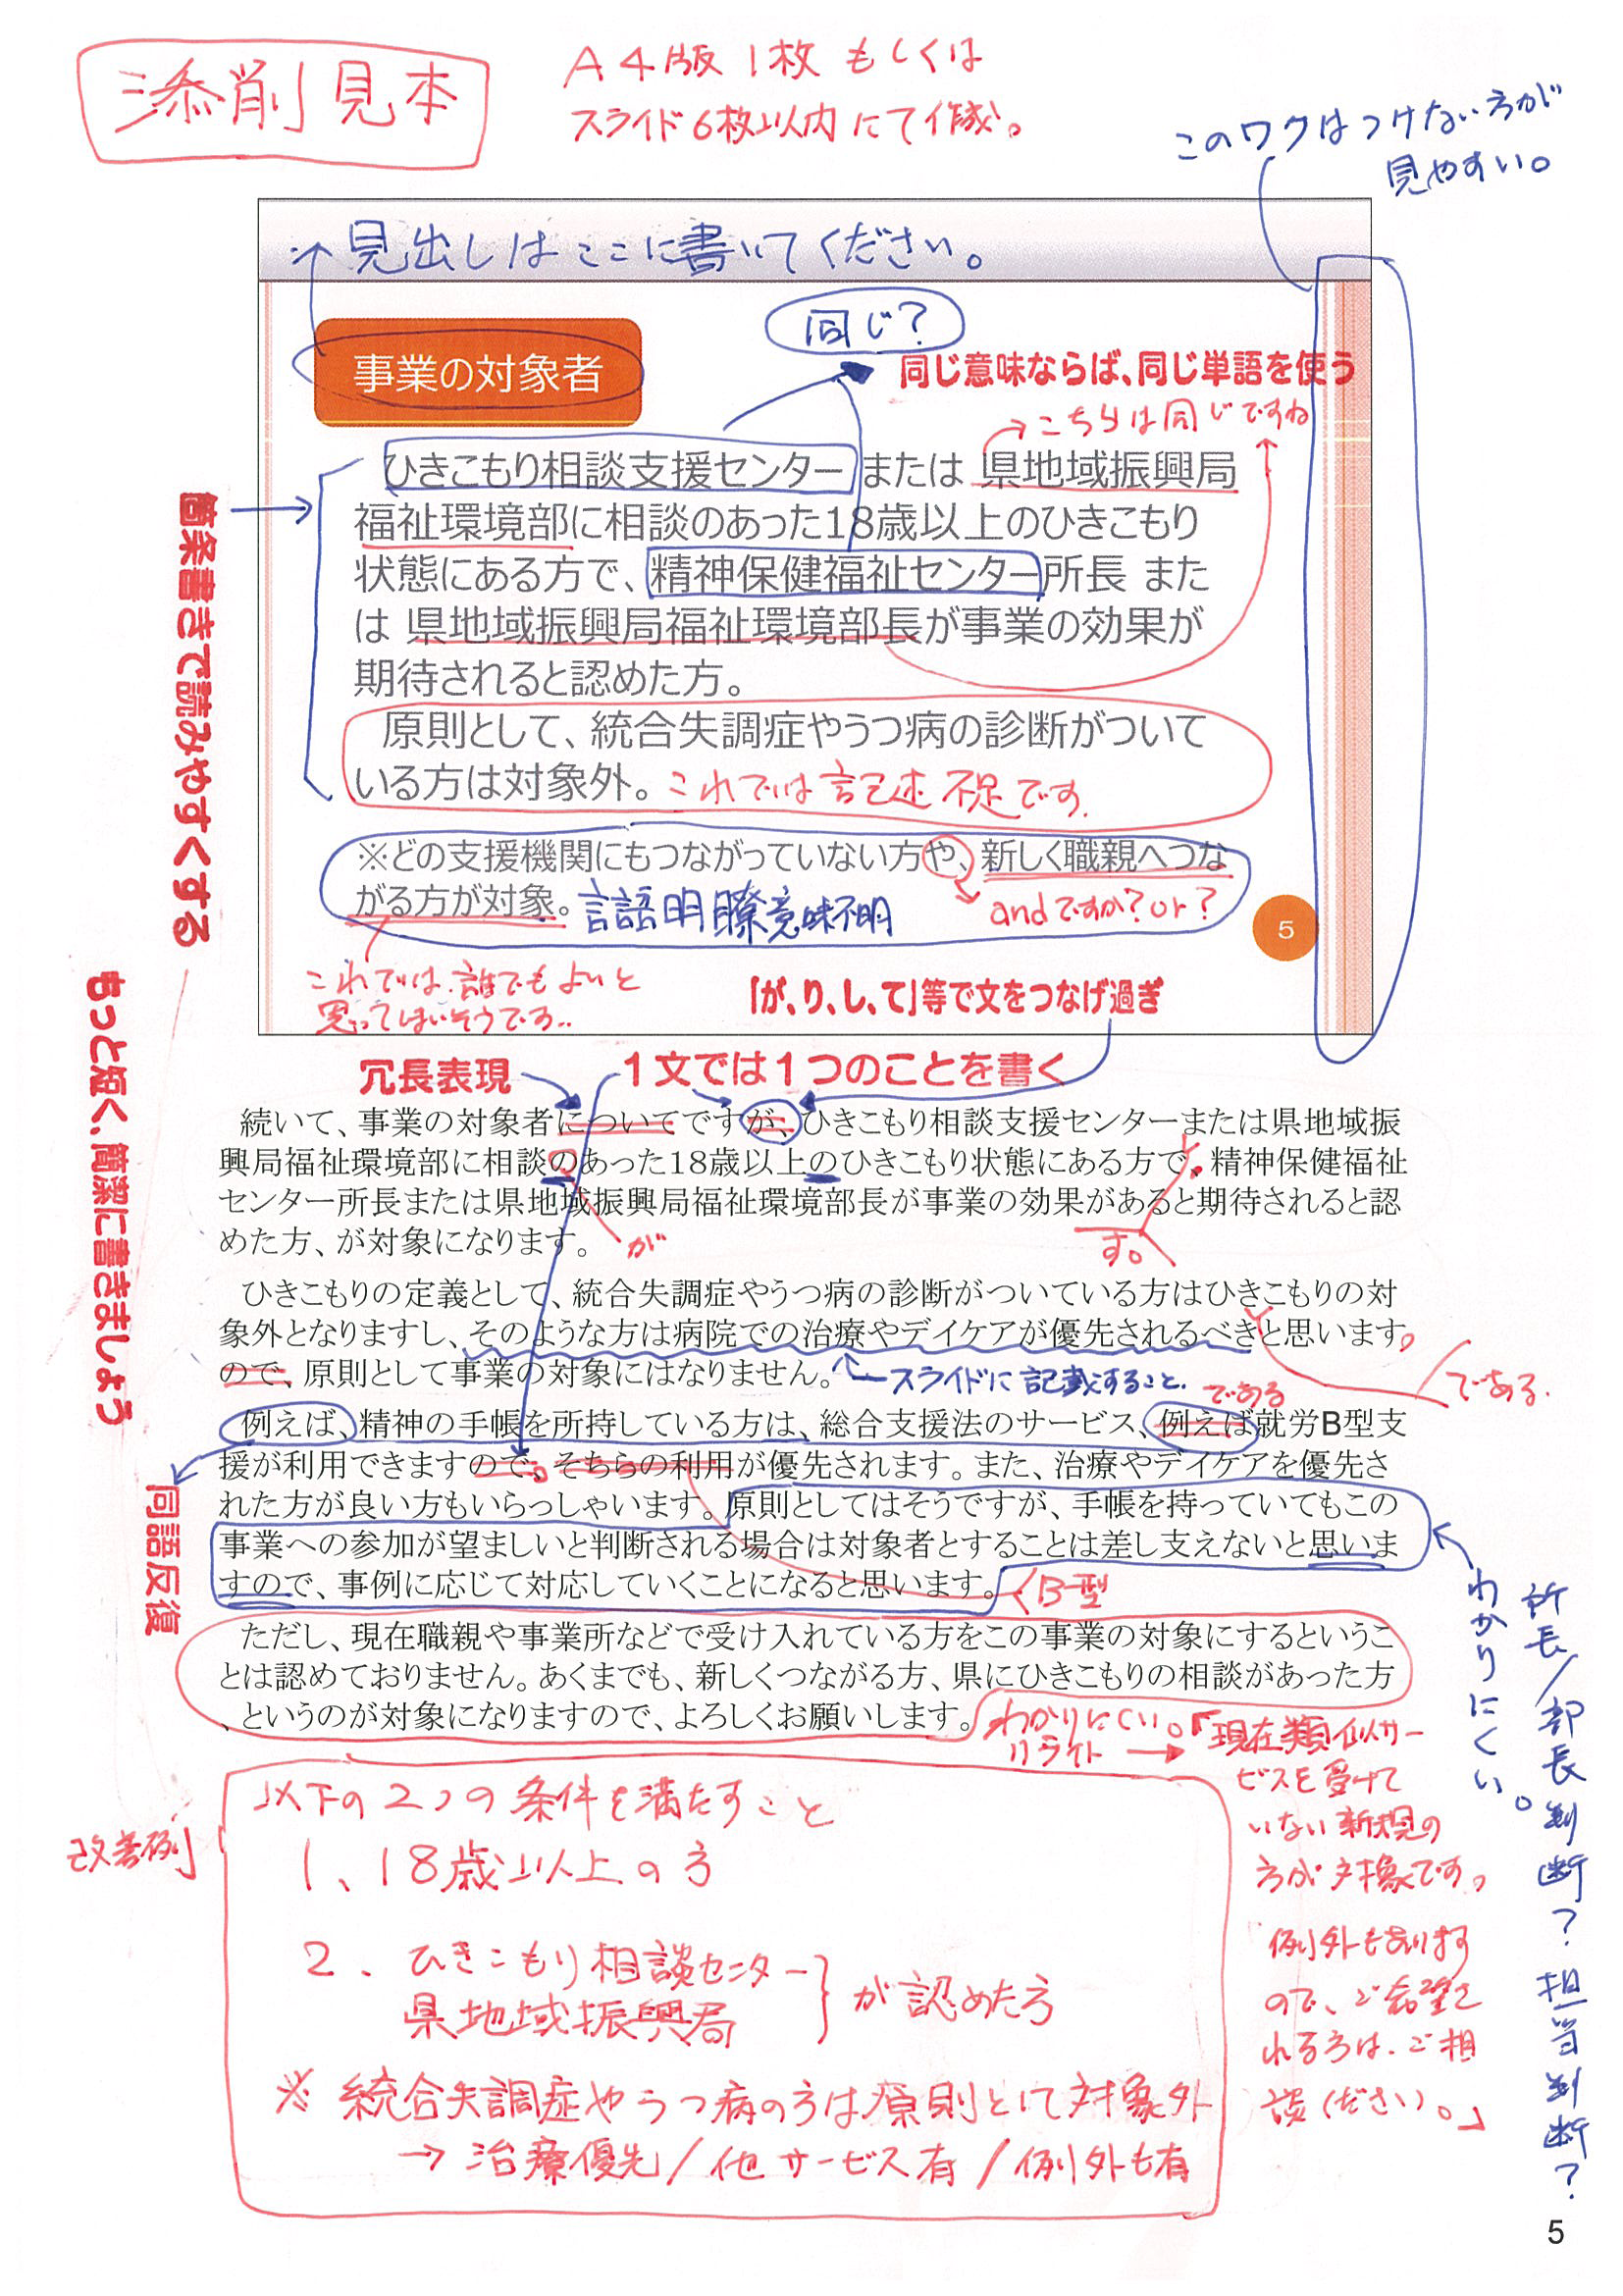 添削見本
A4版1枚もしくは
スライド6枚以内にて作成。
このワクはつけない方が
見やすい。
見出しはここに書いてください。
同じ?
事業の対象者
同じ意味ならば、同じ単語を使う
こちらは同じですね
ひきこもり相談支援センター または 県地域振興局
福祉環境部に相談のあった18歳以上のひきこもり
状態にある方で、精神保健福祉センター所長 また
は 県地域振興局福祉環境部長が事業の効果が
期待されると認めた方。
原則として、統合失調症やうつ病の診断がついて
いる方は対象外。これでは記述不足です.
※どの支援機関にもつながっていない方や、新しく職親へつな
がる方が対象。言語明瞭意味不明
andですか?or?
5
これでは、誰でもよいと
思ってしまいそうです..
「が、り、し、て」等で文をつなげ過ぎ
箇条書きで読みやすくする
もっと短く、簡潔に書きましょう
冗長表現
1文では1つのことを書く
続いて、事業の対象者についてですが、ひきこもり相談支援センターまたは県地域振
興局福祉環境部に相談のあった18歳以上のひきこもり状態にある方で、精神保健福祉
センター所長または県地域振興局福祉環境部長が事業の効果があると期待されると認
めた方、が対象になります。
が
す。
ひきこもりの定義として、統合失調症やうつ病の診断がついている方はひきこもりの対
象外となりますし、そのような方は病院での治療やデイケアが優先されるべきと思います
ので、原則として事業の対象にはなりません。
スライドに記載すること.
である
である.
例えば、精神の手帳を所持している方は、総合支援法のサービス、例えば就労B型支
援が利用できますので、そちらの利用が優先されます。また、治療やデイケアを優先さ
れた方が良い方もいらっしゃいます。原則としてはそうですが、手帳を持っていてもこの
事業への参加が望ましいと判断される場合は対象者とすることは差し支えないと思いま
すので、事例に応じて対応していくことになると思います。
B型
同語反復
わかりにくい。
所長/部長判断?担当判断?
ただし、現在職親や事業所などで受け入れている方をこの事業の対象にするというこ
とは認めておりません。あくまでも、新しくつながる方、県にひきこもりの相談があった方
、というのが対象になりますので、よろしくお願いします。
わかりにくい。
リライト
「現在類似サー
ビスを受けて
いない新規の
方が対象です。
例外もあります
ので、ご希望さ
れる方は、ご相
談ください。」
改善例
以下の2つの条件を満たすこと
1、18歳以上の方
2、ひきこもり相談センター
県地域振興局
が認めた方
※ 統合失調症やうつ病の方は原則として対象外
→ 治療優先/他サービス有/例外も有
5